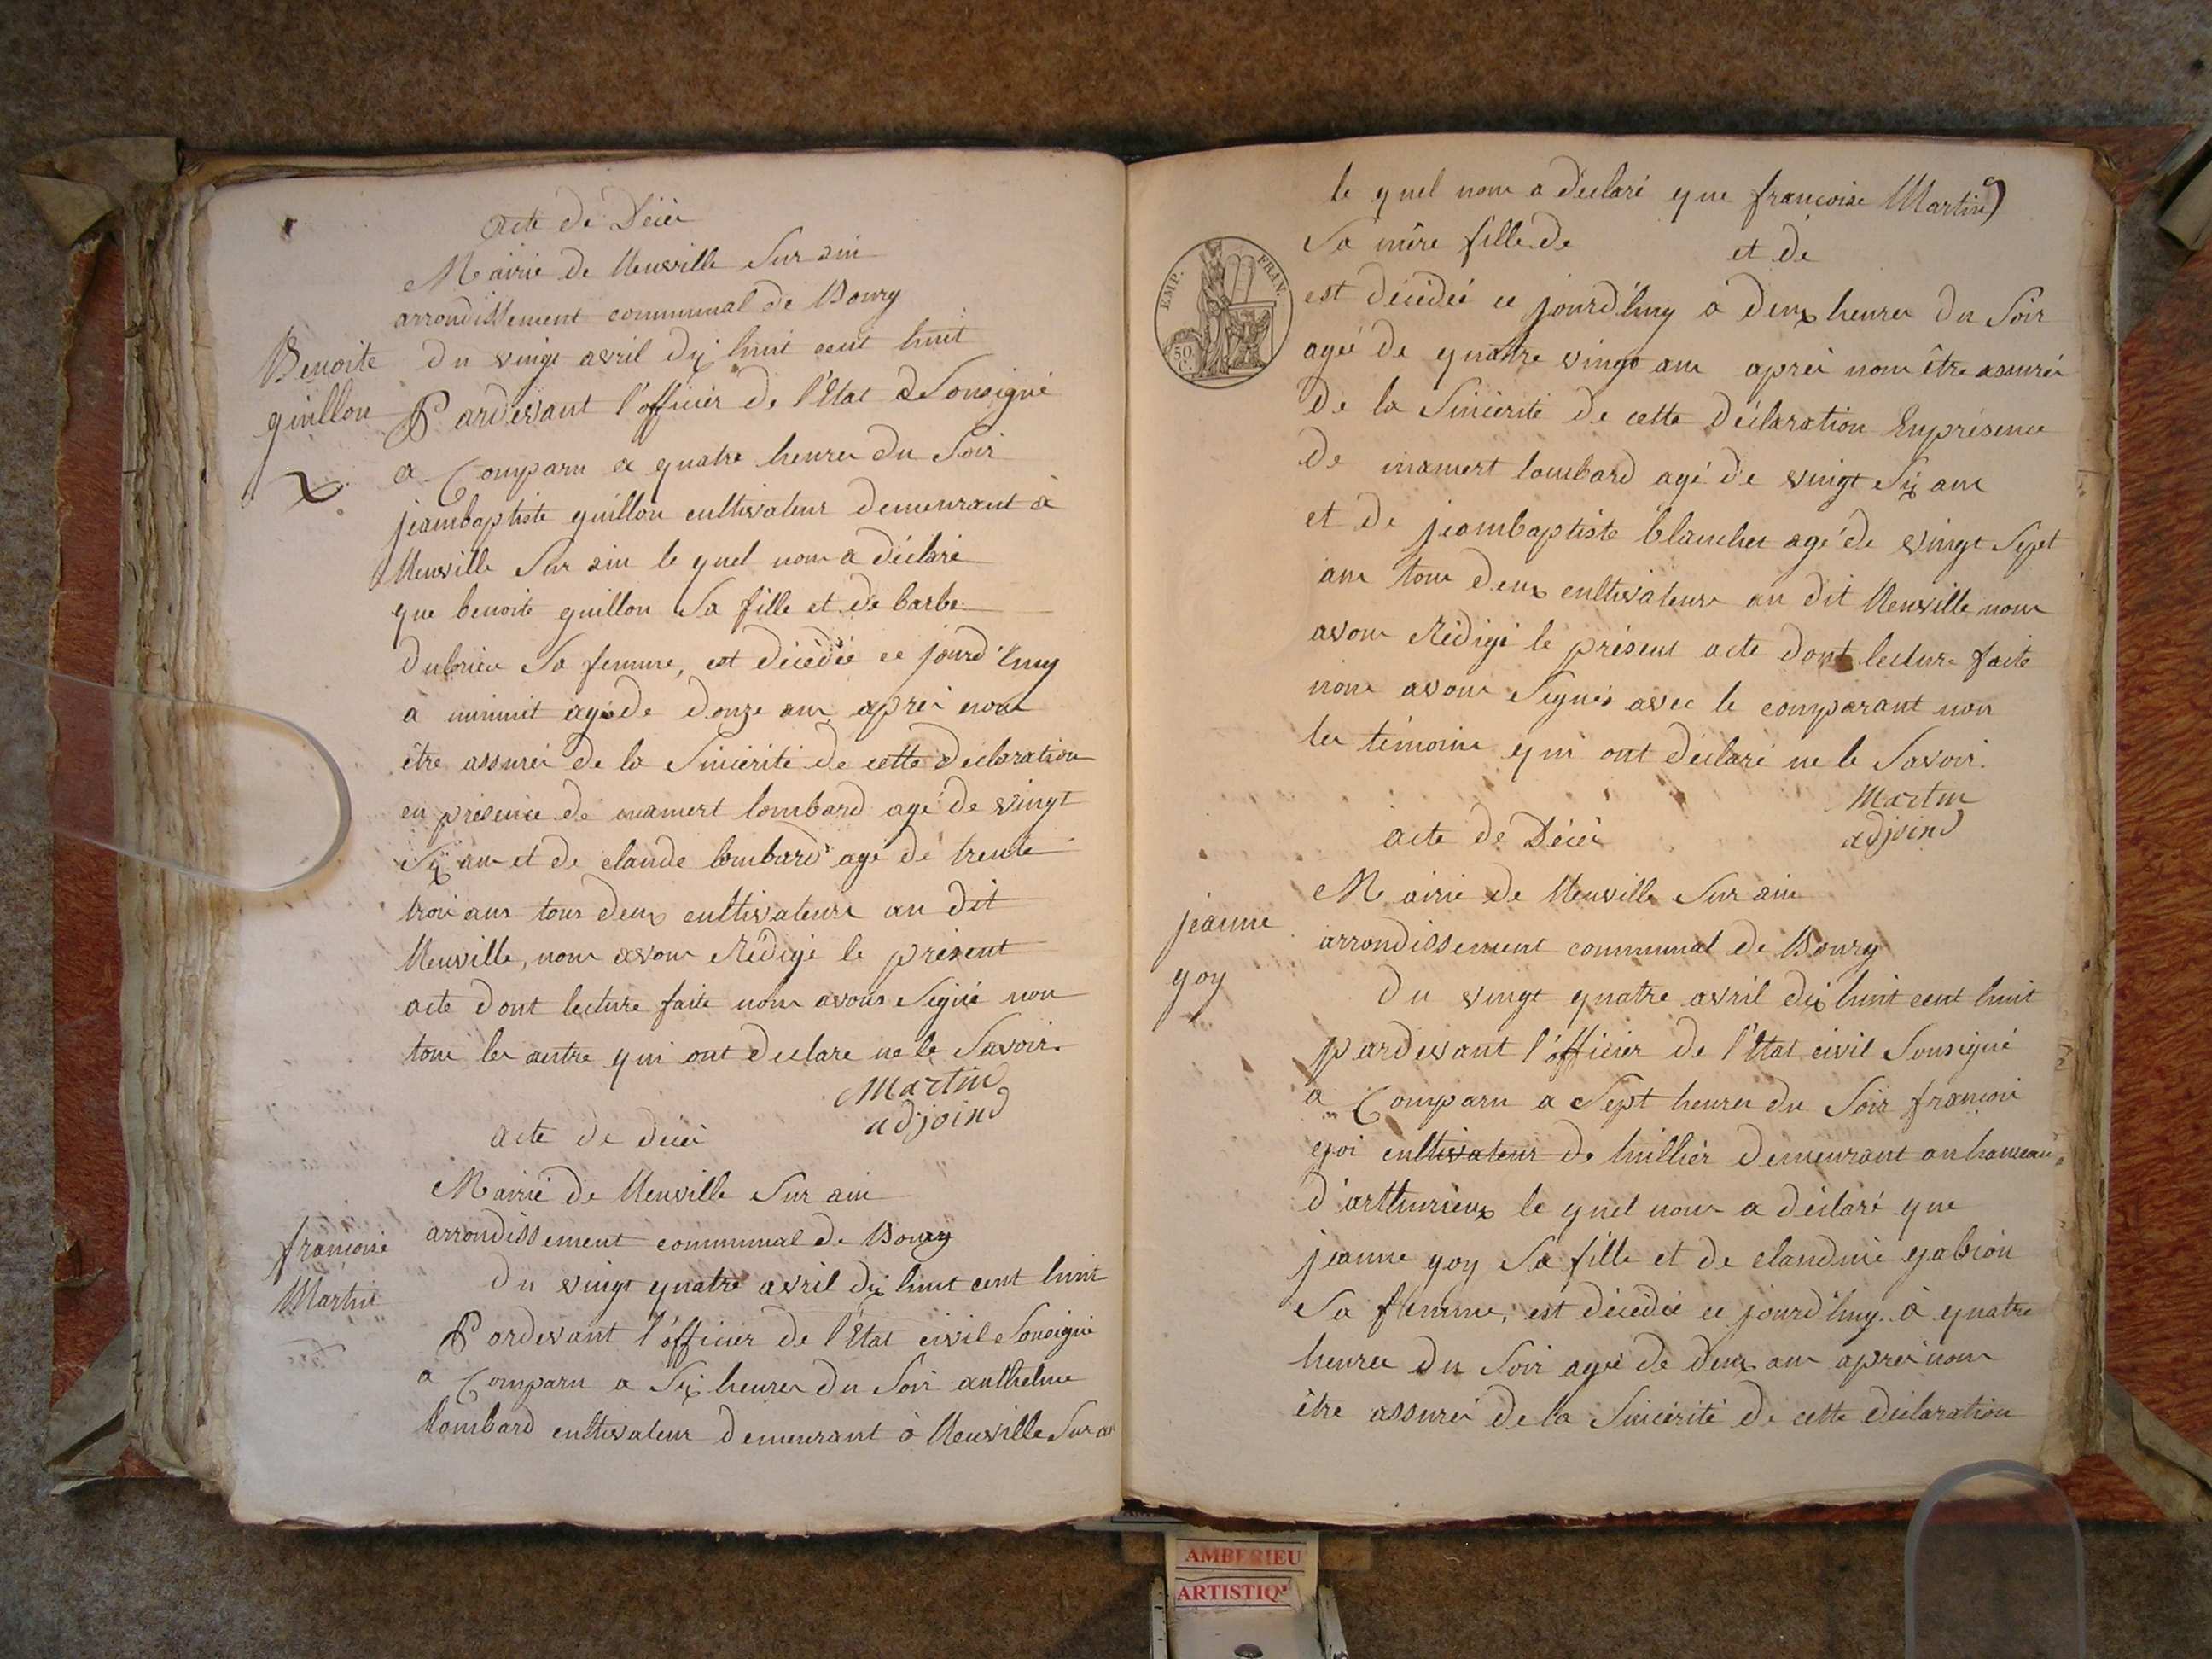 acte de Décès
Mairie de Neuville Sur ain
arrondissement communal de Bourg
Benoite
guillon
du vingt avril dix huit cent huit
Pardevant l'officier de l'Etat Sousigné
a Comparu a quatre heures du Soir
jeambaptiste guillon cultivateur demeurant à
Neuville Sur ain le quel nous a déclaré
que benoite guillon Sa fille et de barbe
Sa femme, est décédée ce jourd'huy
a minuit agé de douze ans après nous
être assurés de la Sincérité de cette déclaration
en présence de mamert lombard agé de vingt
Six ans et de claude lombard agé de trente
trois ans tous deux cultivateurs au dit
Neuville, nous avons Rédigé le présent
acte dont lecture faite nous avons Signé non
tous les autre qui ont declare ne le Savoir.
Martin
adjoind
acte de décès
Mairie de Neuville Sur ain
arrondissement communal de Bourg
francoise
Martin
du vingt quatre avril dix huit cent huit
Pardevant l'officier de l'Etat civil Sousigné
a Comparu a Six heures du Soir anthelme
Lombard cultivateur demeurant à Neuville Sur ain
le quel nous a déclaré que francoise Martin
Sa mère fille de et de
EMP. FRAN.
50 C.
est décédée ce jourd'huy a deux heures du Soir
agée de quatre vingt ans après nous être assurés
de la Sincérité de cette déclaration En présence
de mamert lombard agé de vingt Six ans
et de jeambaptiste blanchet agé de vingt Sept
ans tous deux cultivateurs au dit Neuville nous
avons Rédigé le présent acte dont lecture faite
nous avons Signés avec le comparant non
les témoins qui ont déclaré ne le Savoir.
Martin
adjoind
acte de Décès
Mairie de Neuville Sur ain
jeanne
goy
arrondissement communal de Bourg
du vingt quatre avril dix huit cent huit
pardevant l'officier de l'Etat civil Sousigné
a Comparu a Sept heures du Soir francois
goi cultivateur de demeurant au hameau
d'arthurieux le quel nous a déclaré que
jeanne goy Sa fille et de claudine
Sa femme, est décédée ce jourd'huy à quatre
heures du Soir agée de deux ans après nous
être assurés de la Sincérité de cette déclaration
AMBERIEU
ARTISTIQ